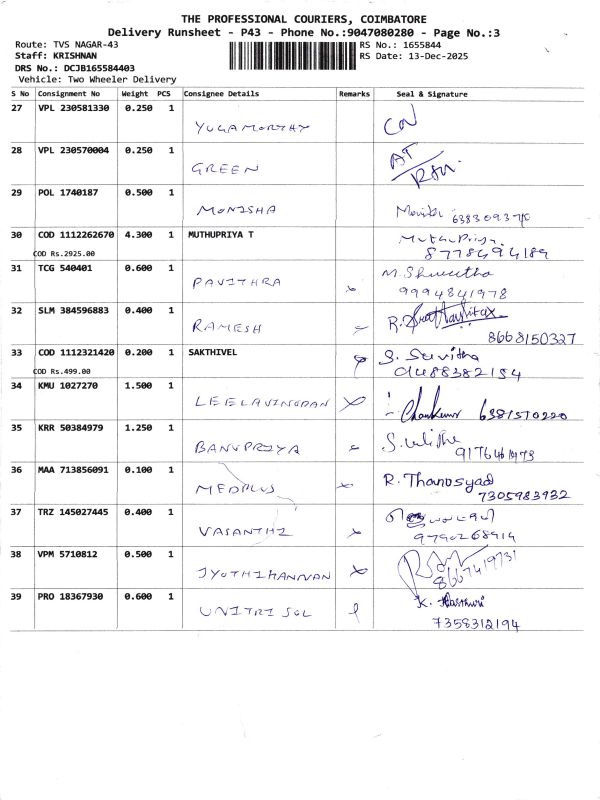 THE PROFESSIONAL COURIERS, COIMBATORE
Delivery Runsheet - P43 - Phone No.:9047080280 - Page No.:3
Route: TVS NAGAR-43
RS No.: 1655844
Staff: KRISHNAN
RS Date: 13-Dec-2025
DRS No.: DCJB165584403
Vehicle: Two Wheeler Delivery
S No Consignment No Weight PCS Consignee Details Remarks Seal & Signature
27 VPL 230581330 0.250 1
YUGAMORTHY
28 VPL 230570004 0.250 1
GREEN
29 POL 1740187 0.500 1
MONISHA
30 COD 1112262670 4.300 1 MUTHUPRIYA T
COD Rs.2925.00 8778494189
31 TCG 540401 0.600 1 M. Shwetha
PAVITHRA 9994841978
32 SLM 384596883 0.400 1
RAMESH R.
8668150327
33 COD 1112321420 0.200 1 SAKTHIVEL S. Suvitha
COD Rs.499.00
34 KMU 1027270 1.500 1
LEELAVINODAN 6381570220
35 KRR 50384979 1.250 1
BANUPRIYA
36 MAA 713856091 0.100 1 R. Thanosyad
MEDPLUS 7305983932
37 TRZ 145027445 0.400 1
VASANTHI 9790268914
38 VPM 5710812 0.500 1
JYOTHIMANNAN 8667419731
39 PRO 18367930 0.600 1 K.
UNITRI SOL 7358312194